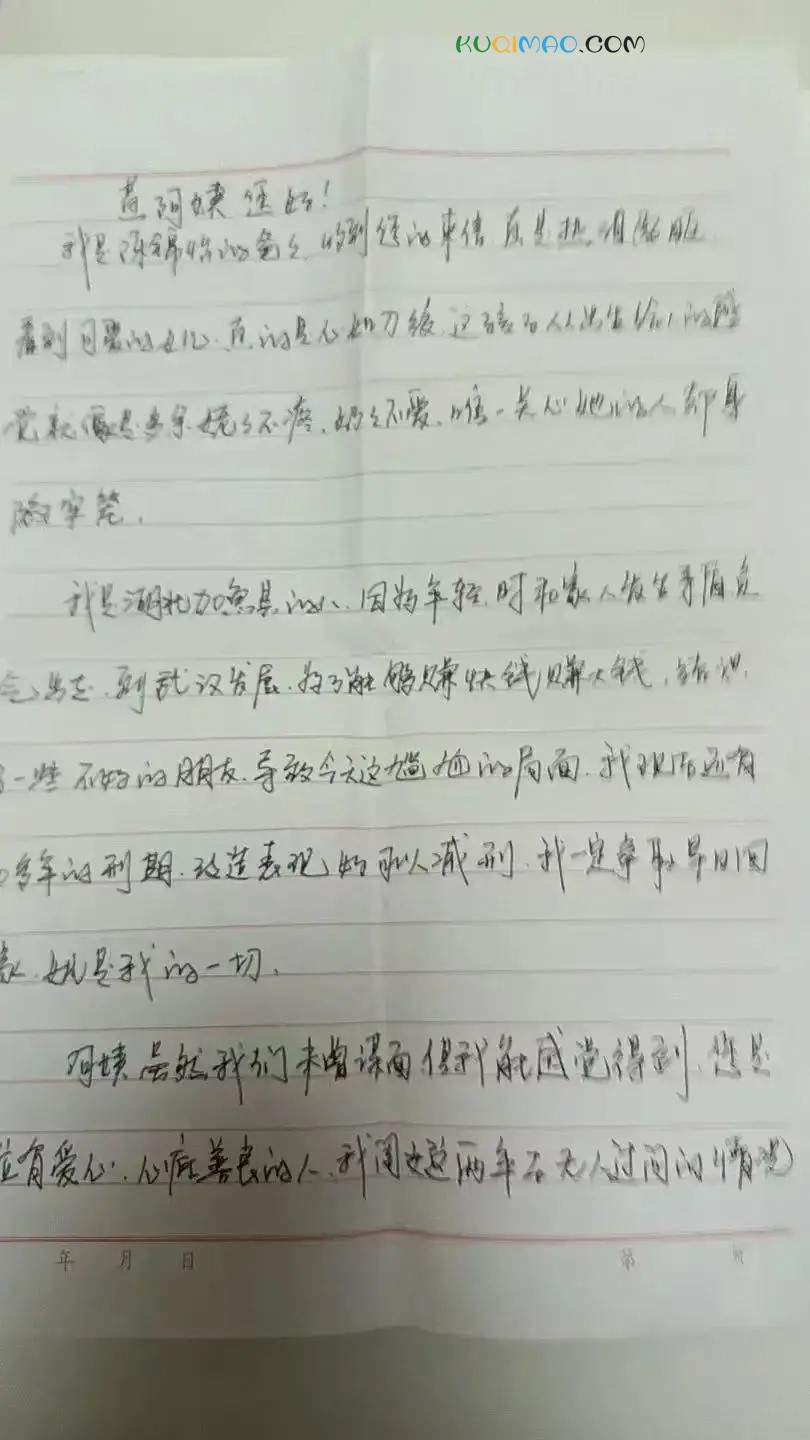 KUQIMAO.COM
阿姨您好!
我是陈锦怡的爸爸,收到您的来信真是热泪满眶
看到可爱的女儿,真的是心如刀绞,这孩子从出生给人的感
觉就像是多余,姥姥不疼,奶奶不爱,唯一关心她的人却身
陷牢笼.
我是湖北加鱼县的人,因为年轻时和家人发生矛盾负
气出走,到武汉发展,为了能够赚快钱赚大钱,结识
一些不好的朋友,导致今天这尴尬的局面,我现在还有
多年的刑期,改造表现好可以减刑,我一定争取早日回
家,女儿是我的一切.
阿姨虽然我们未曾谋面但我能感觉得到,您是
位有爱心,心底善良的人,我闺女这两年在无人过问的情况
年 月 日
第 页